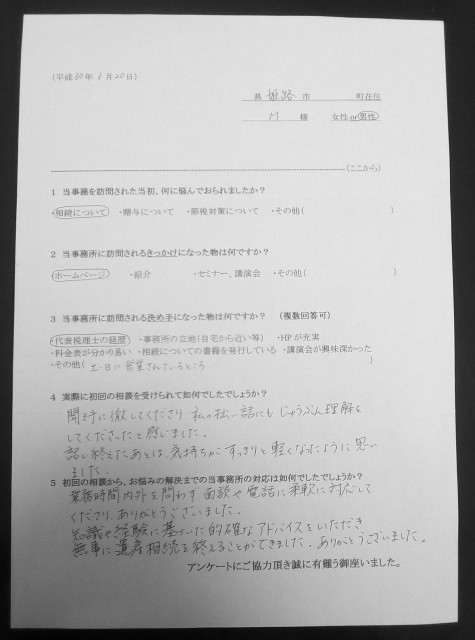 (平成30年 6月20日)
県 姫路 市 町在住
M 様 女性 or 男性
(ここから)
1 当事務を訪問された当初、何に悩んでおられましたか？
・相続について ・贈与について ・節税対策について ・その他( )
2 当事務所に訪問されるきっかけになった物は何ですか？
・ホームページ ・紹介 ・セミナー、講演会 ・その他( )
3 当事務所に訪問される決め手になった物は何ですか？ (複数回答可)
・代表税理士の経歴 ・事務所の立地(自宅から近い等) ・HPが充実
・料金表が分かり易い ・相続についての書籍を発行している ・講演会が興味深かった
・その他( 土・日に営業されているところ )
4 実際に初回の相談を受けられて如何でしたでしょうか？
聞き手に徹してくださり 私の拙い話にもじゅうぶん理解を
してくださったと感じました。
話し終えたあとは、気持ちがすっきりと軽くなったように思い
ました。
5 初回の相談から、お悩みの解決までの当事務所の対応は如何でしたでしょうか？
業務時間内外を問わず 面談や電話に柔軟に対応して
くださり、ありがとうございました。
知識や経験に基づいた的確なアドバイスをいただき
無事に遺産相続を終えることができました。ありがとうございました。
アンケートにご協力頂き誠に有難う御座いました。